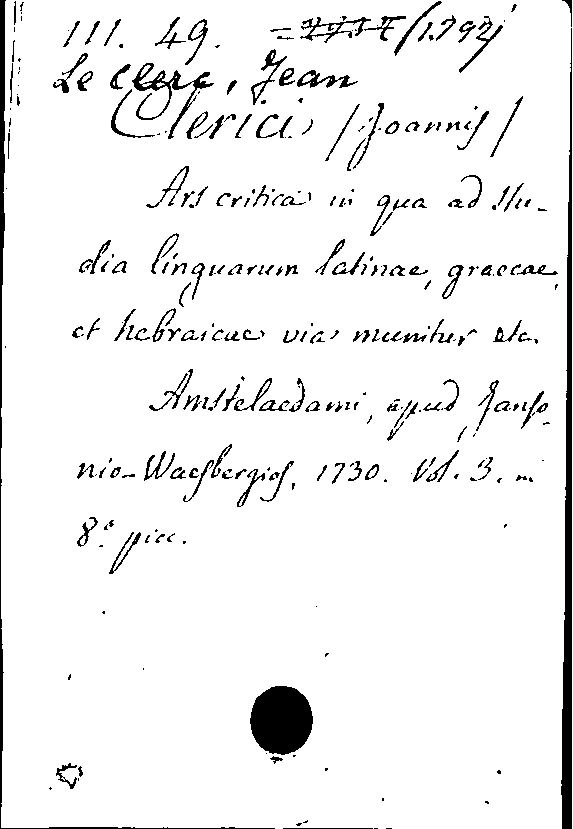 111. 49.
Le Clerc, Jean
Clerici /Joannis/
Ars critica in qua ad stu-
dia linguarum latinae, graecae,
et hebraicae via munitur etc.
Amstelaedami, apud Janso-
nio-Waesbergios, 1730. Vol. 3. in
8.° picc.